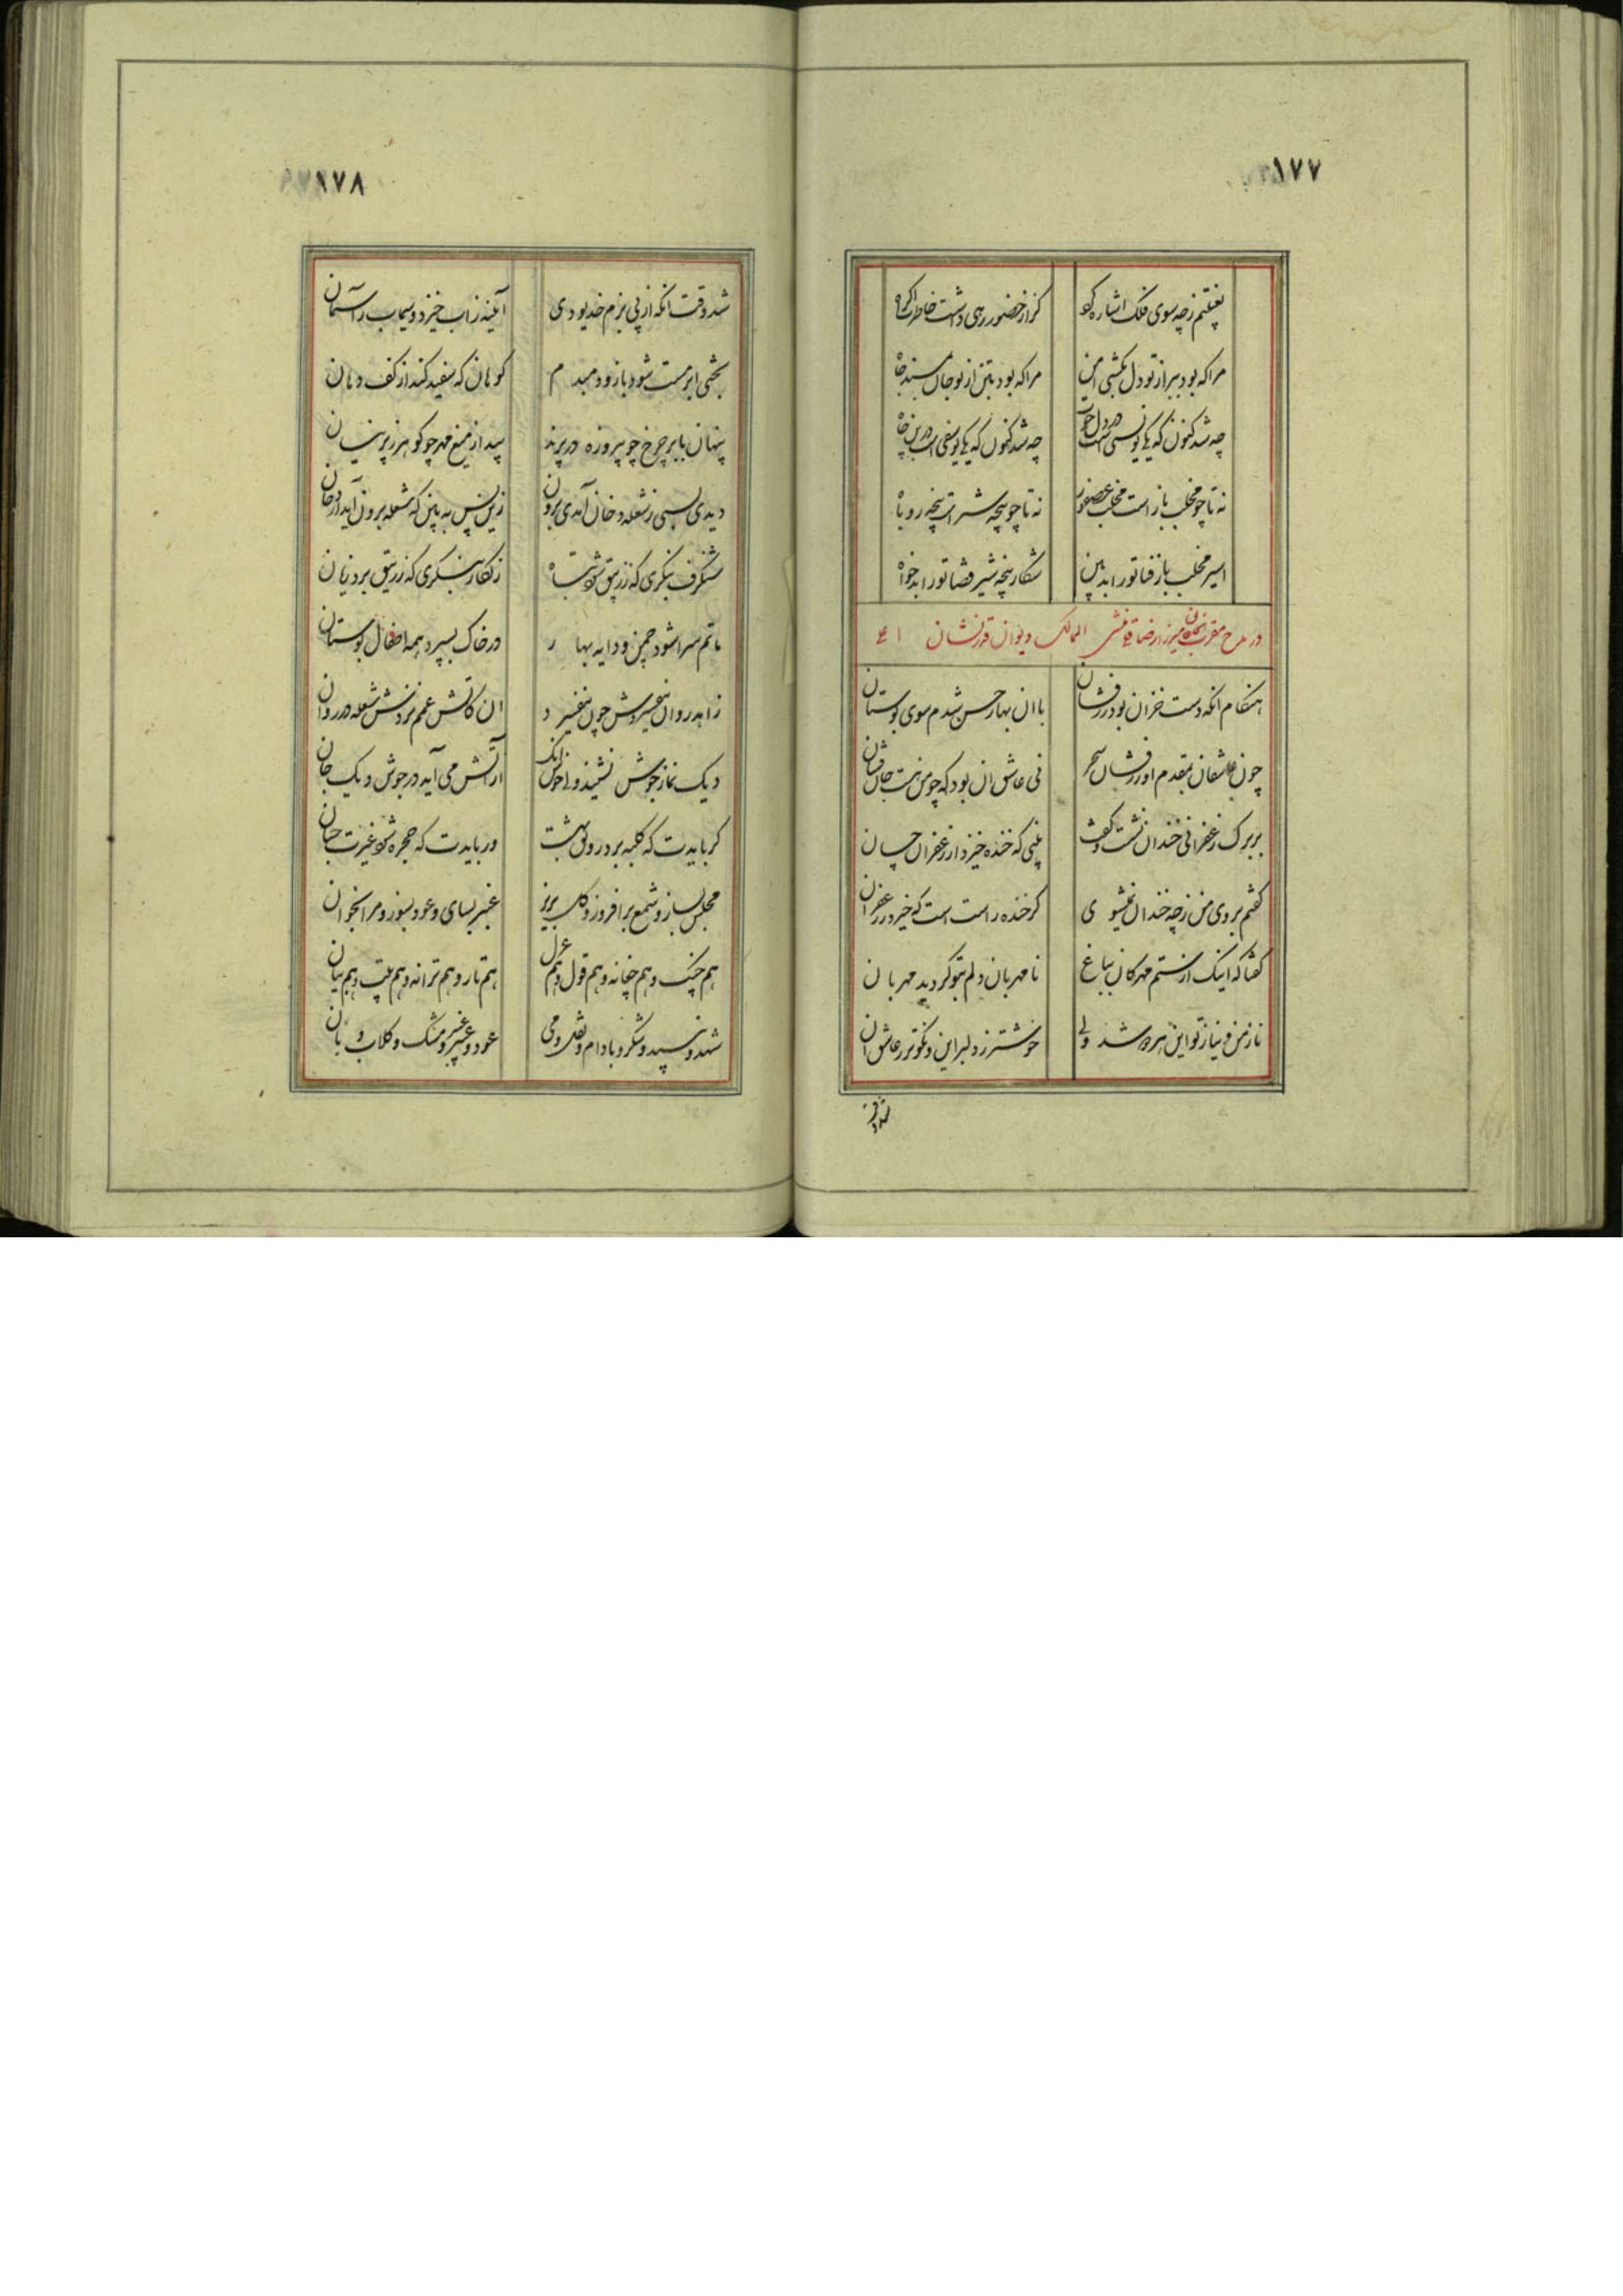 ١٧٧
بغبغتم زچه سوی فلک اشاره کو گر از حضور رهی داشت خاطر اکراه
مرا که بود ببر از تو دل بکشی امن مرا که بود بتن از تو جان بسند جاه
چه شد کنون که یکی یونسی است در دل حوت چه شد کنون که یکی یوسفی است در بن چاه
نه تا چو مخلب باز است مخلب عصفور نه تا چو پنجه شیر است پنجه روباه
اسیر مخلب باز فنا تو را بدبین شکار پنجه شیر فنا تو را بدخواه
در مدح مقرب الخاقان میرزا رضا قلی منشی الممالک دیوان قدر نشان
هنگام آنکه دست خزان بود زرفشان با ان بهار حسن شدم سوی بوستان
چون عاشقان بمقدم او زرفشان سحر نی عاشق ان بود که چو من نیست جان فشان
بر برک زعفرانی خندان نشست و گفت بینی که خنده خیزد از زعفران چسان
گفتم بروی من زچه خندان نمیشوی گر خنده راست است که خیزد ز زعفران
گفتا که اینک از ستم مهرکان بباغ نامهربان دلم بتو کردید مهربان
ناز من و نیاز تو این هر دو شد ولی خوشتر ز دلبر این و نکوتر ز عاشق ان
شد وقت
١٧٨
شد وقت انکه از پی بزم خدیو دی آیینه زاب خیزد و سیماب ز آسمان
بختی ابر مست شود باز و دمبدم کوهان که سفید کند از کف دهان
پنهان بابر چرخ چو پیروزه در پرند پیدا ز میغ مهر چو کوهر ز پرنیان
دیدی بسی ز شعله دخان آمدی برون زین پس به بین که شعله برون آید از دخان
شنگرف بنگری که ز زیبق شود تباه زنگار بنگری که ز زیبق برد زیان
ماتم سرا شود چمن و دایه بهار در خاک بسپرد همه اطفال بوستان
زاهد روان بفسردش چون بفسرد ان کاتش غمم نزدش شعله در روان
دیک نماز جوش نشیند ولی خوش انک از آتش می آید در جوش دیک جان
گر بایدت که کلبه برد رونق بهشت ور بایدت که حجره شود غیرت جنان
مجلس بساز و شمع برافروز و گل بریز عنبر بسای و عود بسوز و مرا بخوان
هم چنک و هم چغانه و هم قول و هم غزل هم تار و هم ترانه و هم بیت و هم بیان
شهد و سپید و شکر و بادام و نقل و می عود و عنبر و مشک و کلاب و بان